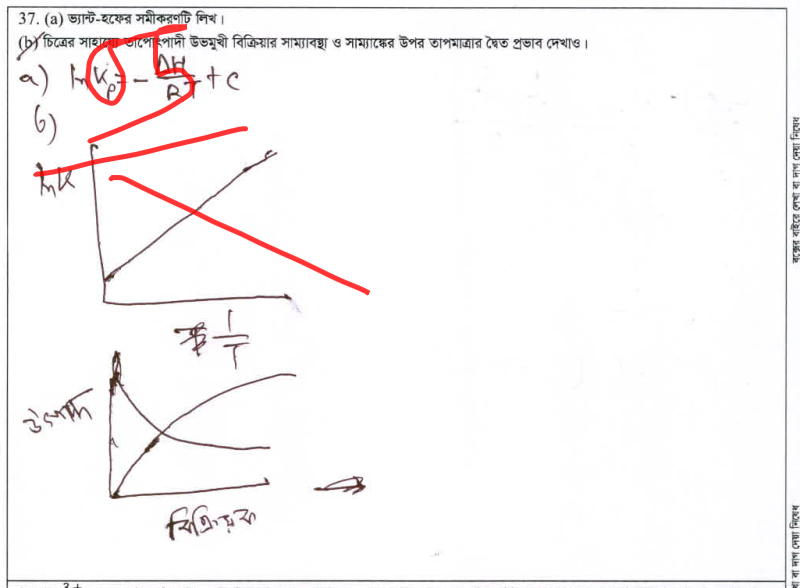 37. (a) ভ্যান্ট-হফের সমীকরণটি লিখ।
(b) চিত্রের সাহায্যে তাপোৎপাদী উভমুখী বিক্রিয়ার সাম্যাবস্থা ও সাম্যাঙ্কের উপর তাপমাত্রার দ্বৈত প্রভাব দেখাও।
a) ln Kp = - ΔH/RT + C
b)
lnK
1/T
উৎপাদ
বিক্রিয়ক
বক্সের বাইরে লেখা বা দাগ দেয়া নিষেধ
বা দাগ দেয়া নিষেধ